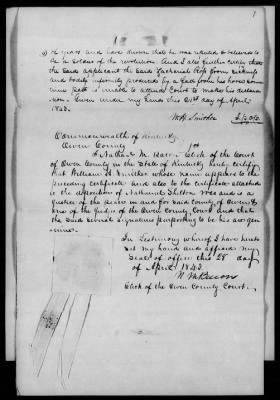 of years and have known that he was reputed & believed to
be a Soldier of the revolution. And I also further certify that
the said applicant the said Zachariah Ross from sickness
and bodily infirmity produced by a fall from his horse some
time past is unable to attend Court to make his declara-
tion. Given under my hand this 21st day of April
1843.
Commonwealth of Kentucky
Owen County
I Nathan H. Clerk of the Court
of Owen County in the State of Kentucky hereby certify
that William H. Smither whose name appears to the
preceding certificate and also to the certificate attached
to the deposition of Nathaniel Shelton was and is a
Justice of the peace in and for said County of Owen &
one of the Judges of the Owen County Court and that
the said several signatures purporting to be his are gen-
uine.
In Testimony whereof I have hereto
set my hand and affixed my
Seal of office this 28 day
of April 1843.
Clerk of the Owen County Court.